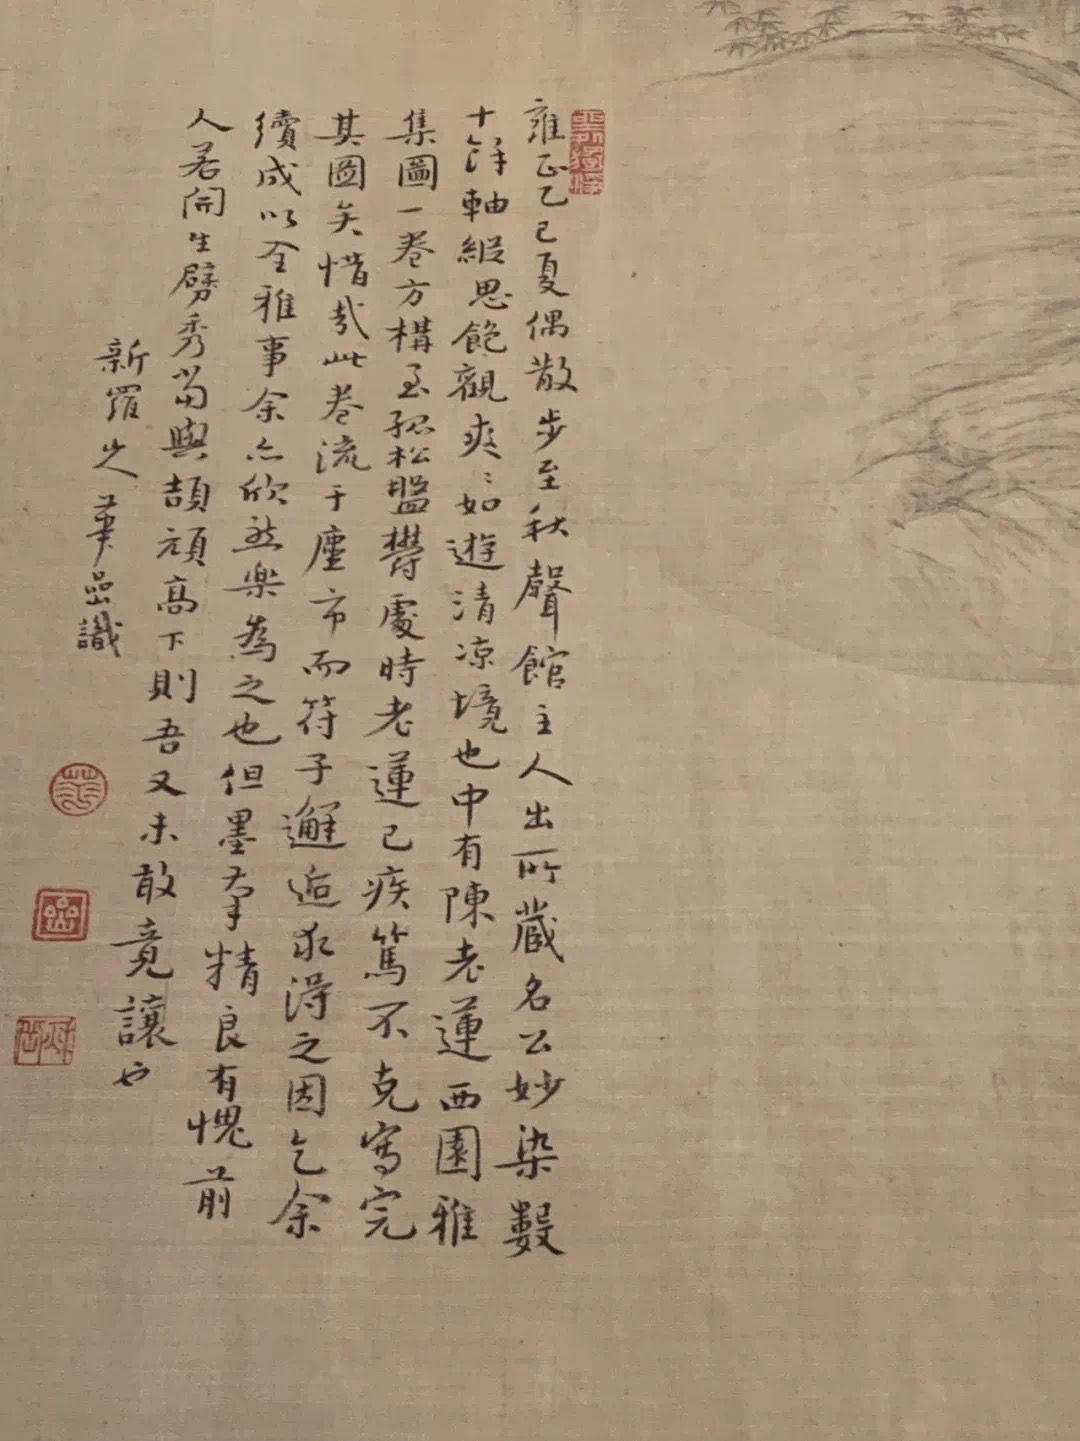 雍正乙巳夏偶散步至秋聲館主人出所藏名公妙染數
十餘軸緞思飽觀爽〻如遊清凉境也中有陳老蓮西園雅
集圖一卷方構至孤松盤欝處時老蓮已疾篤不克寫完
其圖矣惜哉此卷流于塵市而符子邂逅求得之因乞余
續成以全雅事余亦欣然樂為之也但墨筆精良有愧前
人若開生劈秀當與頡頏高下則吾又未敢竟讓也
新羅山人華喦識
華
喦